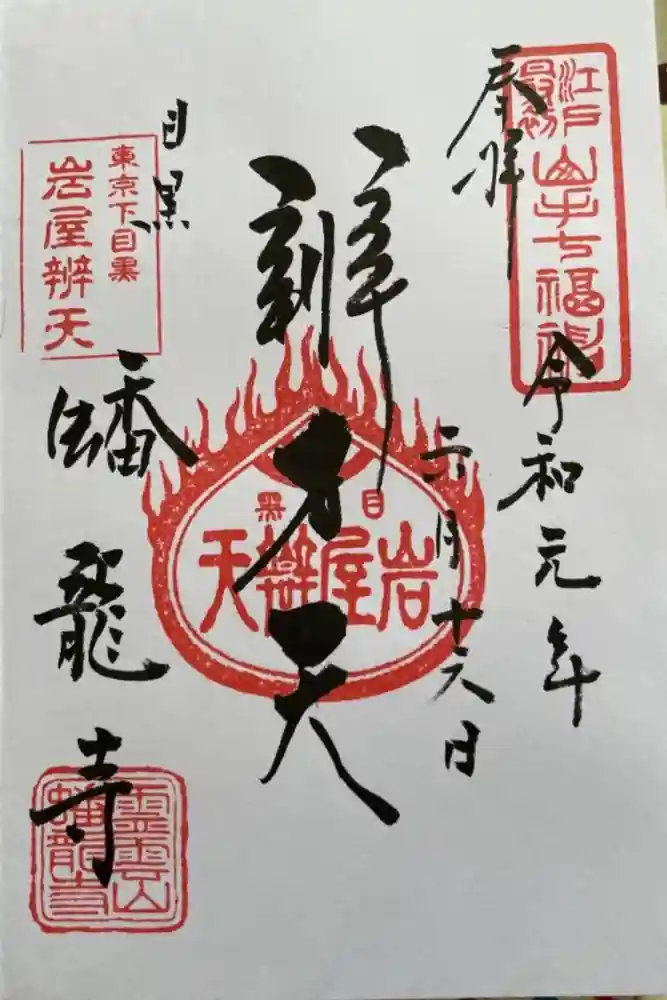 奉拝
江戸最初
山手七福神
令和元年
六月十六日
辨才天
目黒
岩屋辨天
目黒
東京下目黒
岩屋辨天
蟠龍寺
霊雲山
蟠龍寺